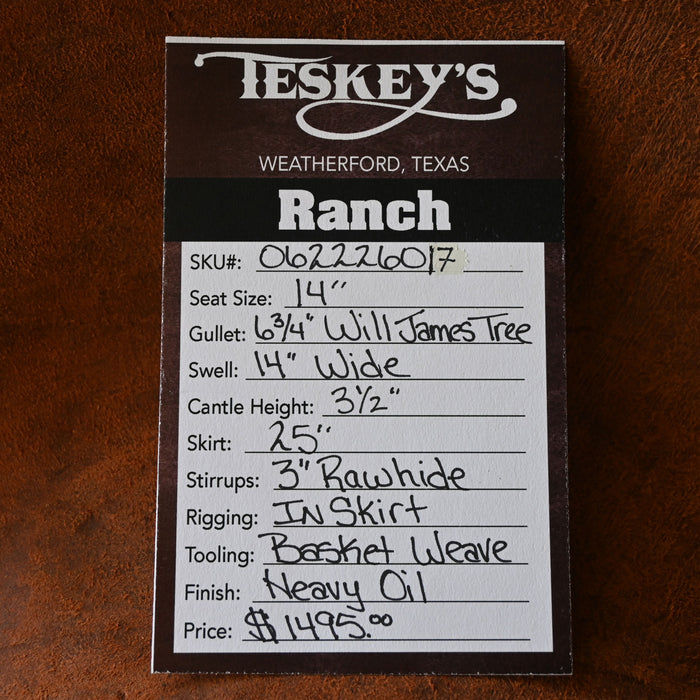 TESKEY'S
WEATHERFORD, TEXAS
Ranch
SKU#: 062226017
Seat Size: 14"
Gullet: 6 3/4" Will James Tree
Swell: 14" Wide
Cantle Height: 3 1/2"
Skirt: 25"
Stirrups: 3" Rawhide
Rigging: IN Skirt
Tooling: Basket Weave
Finish: Heavy Oil
Price: $1495.00